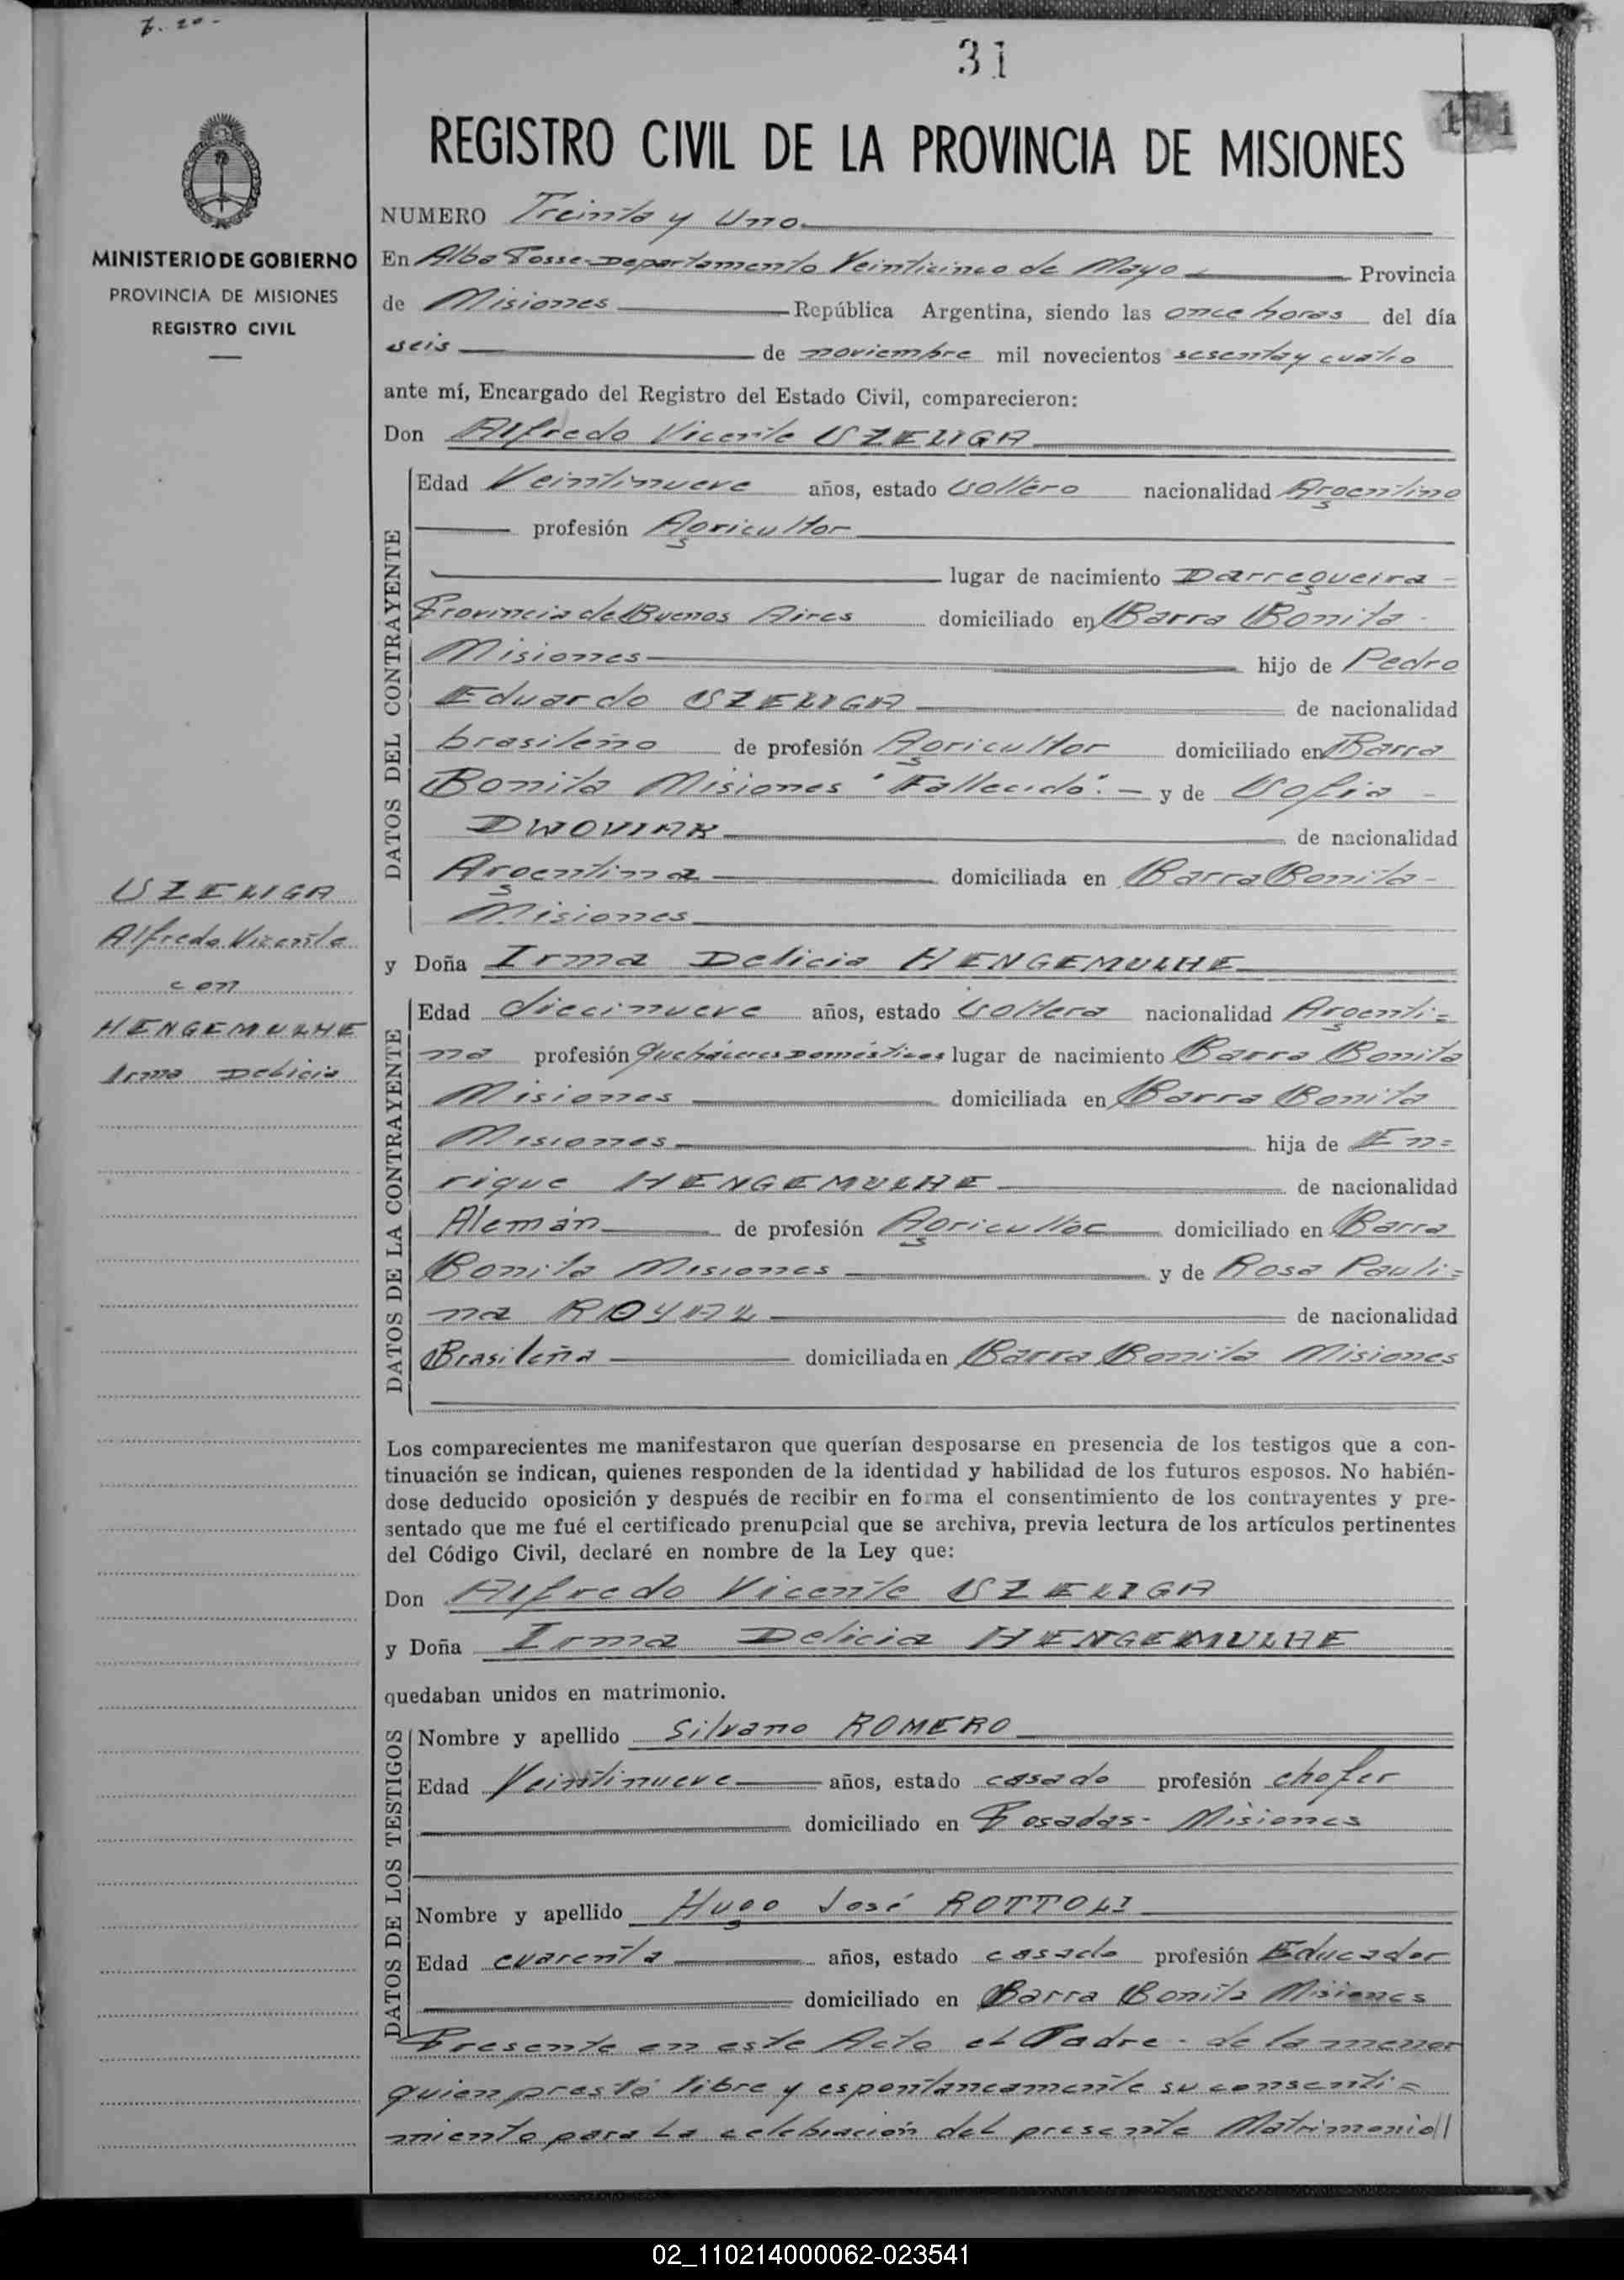 7. 20-
31
REGISTRO CIVIL DE LA PROVINCIA DE MISIONES
MINISTERIO DE GOBIERNO
PROVINCIA DE MISIONES
REGISTRO CIVIL
NUMERO Treinta y Uno
En Alba Posse-Departamento Veinticinco de Mayo Provincia
de Misiones República Argentina, siendo las once horas del día
seis de noviembre mil novecientos sesenta y cuatro
ante mí, Encargado del Registro del Estado Civil, comparecieron:
Don Alfredo Vicente SZELIGA
DATOS DEL CONTRAYENTE
Edad Veintinueve años, estado Soltero nacionalidad Argentino
profesión Agricultor
lugar de nacimiento Darregueira -
Provincia de Buenos Aires domiciliado en Barra Bonita -
Misiones hijo de Pedro
Eduardo SZELIGA de nacionalidad
brasileño de profesión Agricultor domiciliado en Barra
Bonita Misiones "Fallecido".- y de Sofia -
DWOVIAK de nacionalidad
Argentina domiciliada en Barra Bonita -
Misiones
SZELIGA
Alfredo Vicente
con
HENGEMULHE
Irma Delicia
y Doña Irma Delicia HENGEMULHE
DATOS DE LA CONTRAYENTE
Edad diecinueve años, estado Soltera nacionalidad Argenti=
na profesión Quehaceres Domésticos lugar de nacimiento Barra Bonita
Misiones domiciliada en Barra Bonita
Misiones hija de En=
rique HENGEMULHE de nacionalidad
Alemán de profesión Agricultor domiciliado en Barra
Bonita Misiones y de Rosa Pauli=
na ROYAL de nacionalidad
Brasileña domiciliada en Barra Bonita Misiones
Los comparecientes me manifestaron que querían desposarse en presencia de los testigos que a con-
tinuación se indican, quienes responden de la identidad y habilidad de los futuros esposos. No habién-
dose deducido oposición y después de recibir en forma el consentimiento de los contrayentes y pre-
sentado que me fué el certificado prenupcial que se archiva, previa lectura de los artículos pertinentes
del Código Civil, declaré en nombre de la Ley que:
Don Alfredo Vicente SZELIGA
y Doña Irma Delicia HENGEMULHE
quedaban unidos en matrimonio.
DATOS DE LOS TESTIGOS
Nombre y apellido Silvano ROMERO
Edad Veintinueve años, estado casado profesión chofer
domiciliado en Posadas- Misiones
Nombre y apellido Hugo José ROTTOLI
Edad cuarenta años, estado casado profesión Educador
domiciliado en Barra Bonita Misiones
Presente en este Acto el Padre - de la menor
quien prestó libre y espontaneamente su consenti=
miento para la celebración del presente Matrimonio//
02_110214000062-023541